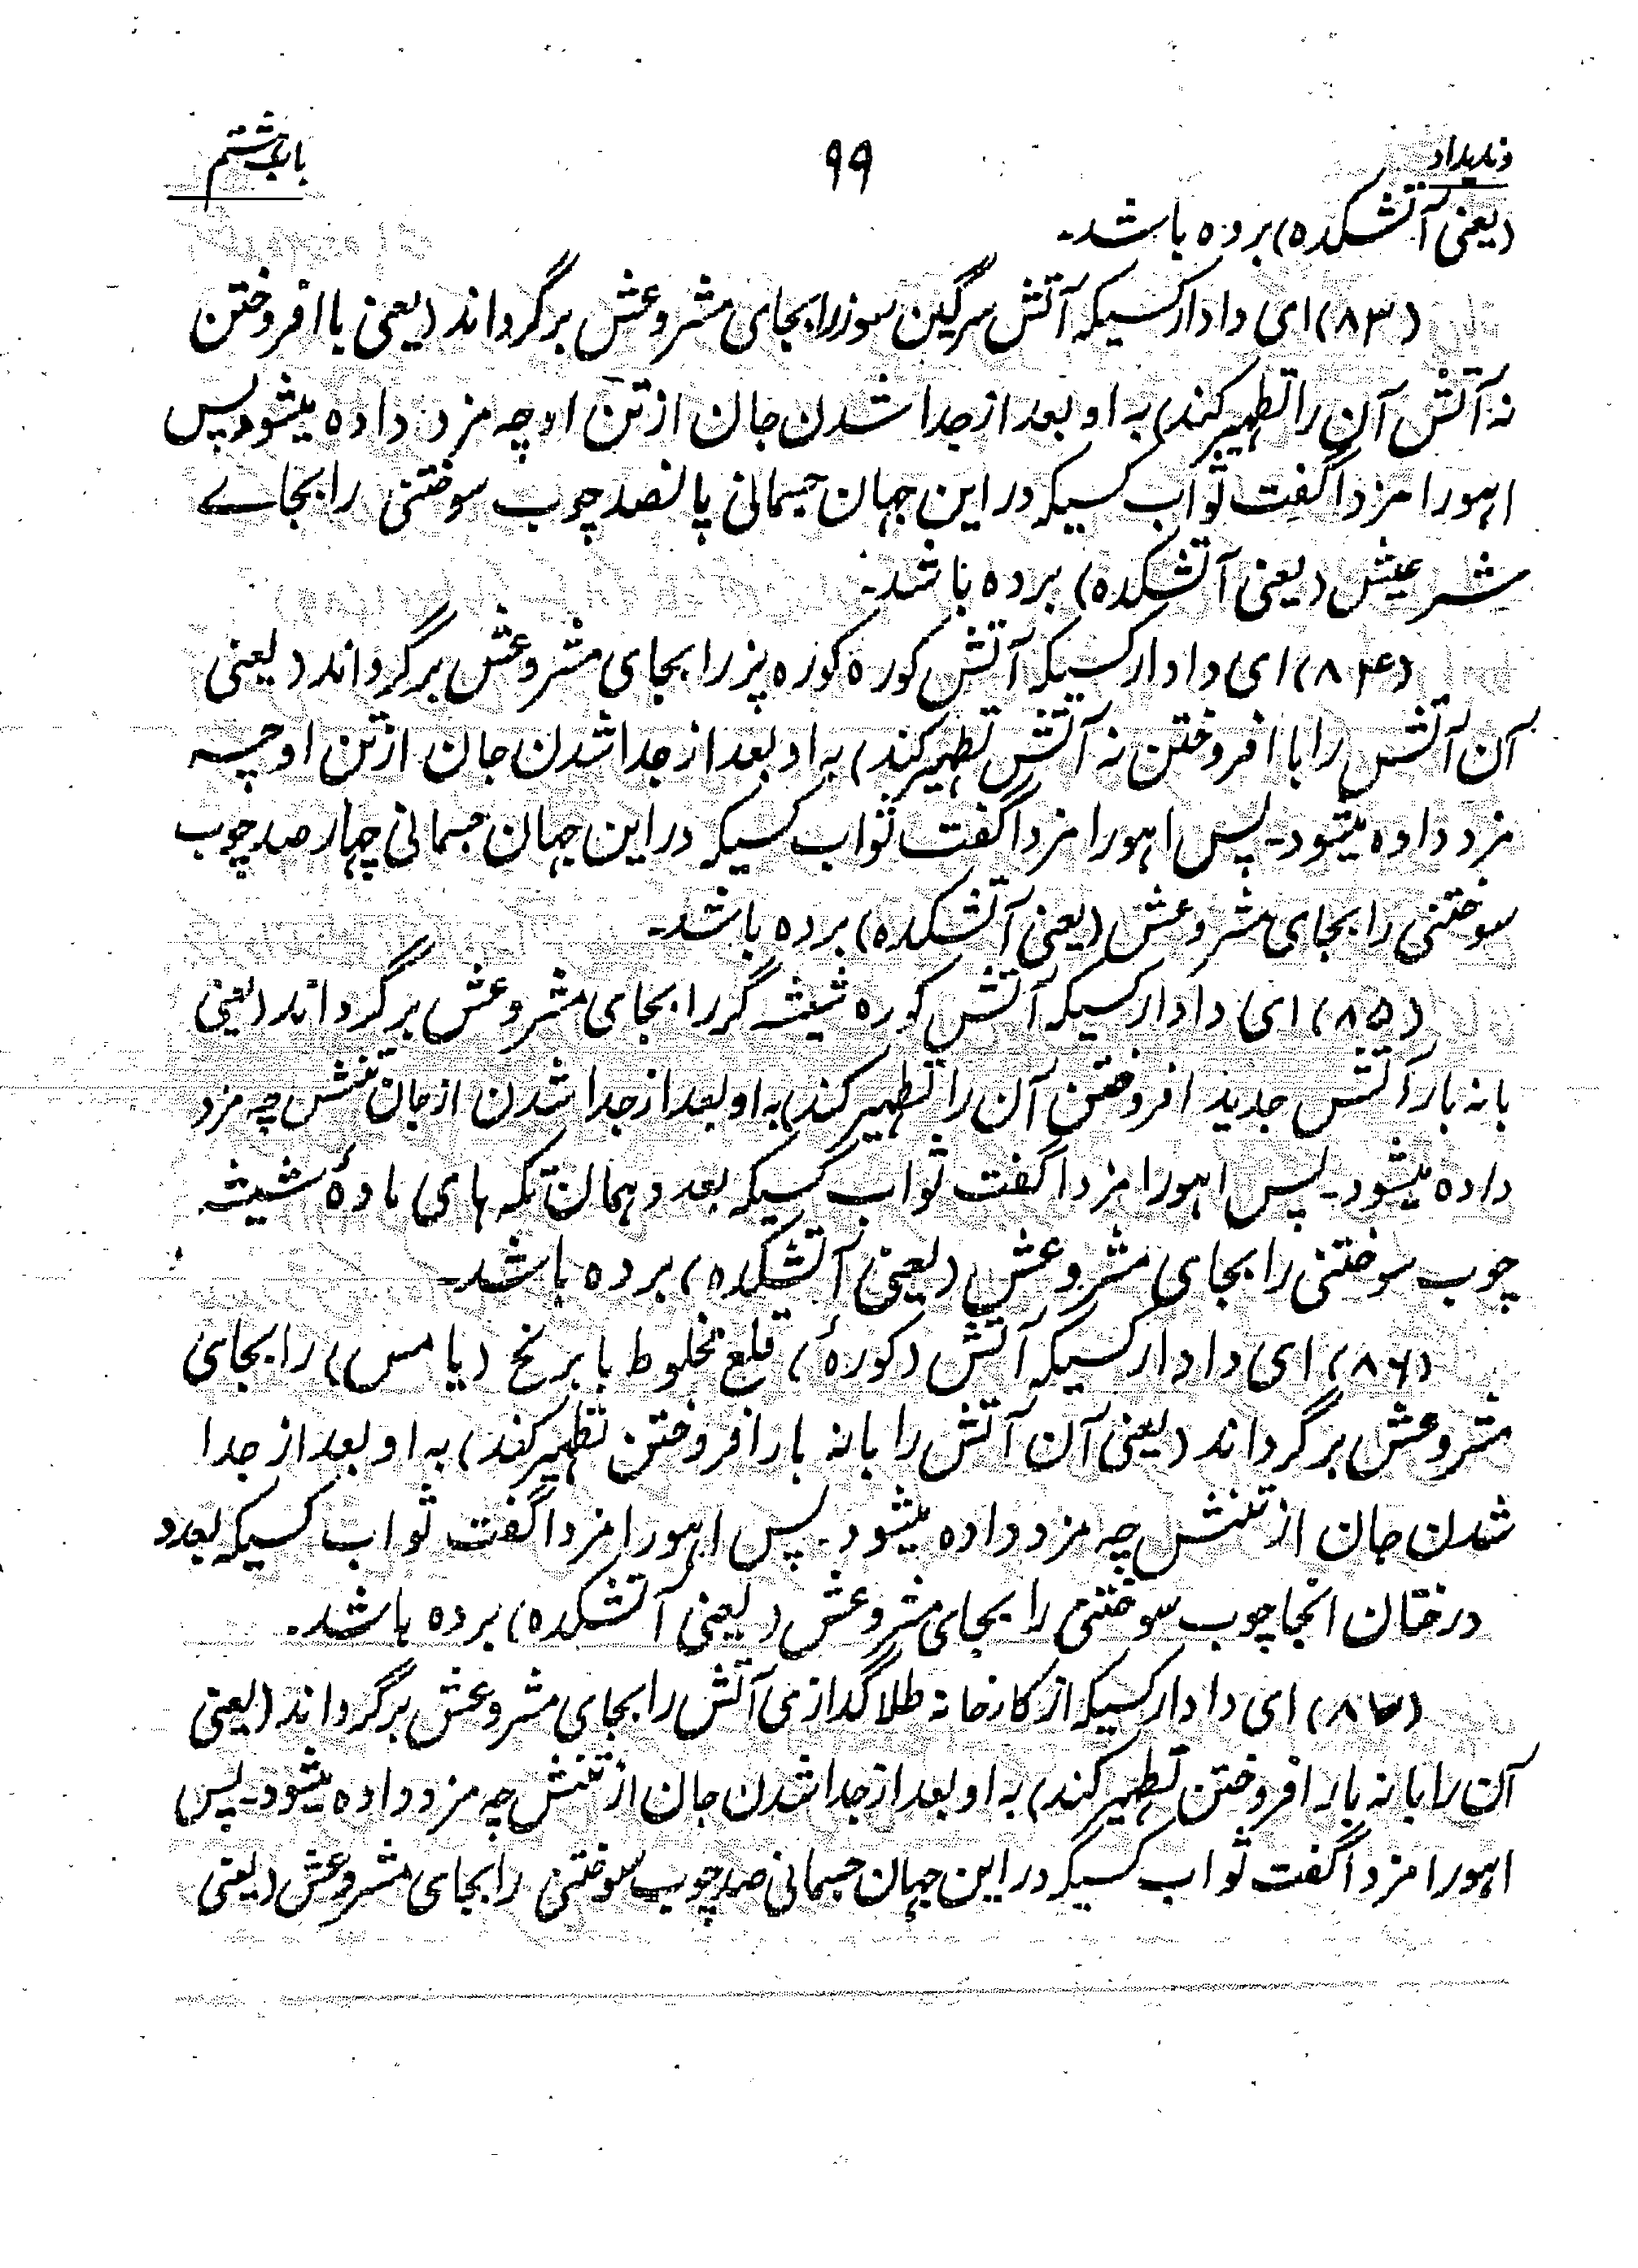 وندیداد ۹۹ باب هشتم
(یعنی آتشکده) برده باشد۔
(۸۳) ای دادار کسیکه آتش سرگین سوز را بجای مشروعش برگرداند (یعنی با افروختن
نه آتش آن را تطهیر کند) به او بعد از جدا شدن جان از تن او چه مزد داده میشود پس
اهورا مزدا گفت ثواب کسیکه در این جهان جسمانی پانصد چوب سوختنی را بجاے
شرعیش (یعنی آتشکده) برده باشد۔
(۸۴) ای دادار کسیکه آتش کوره کوزه پز را بجای مشروعش برگرداند (یعنی
آن آتش را با افروختن نه آتش تطهیر کند) به او بعد از جدا شدن جان از تن او چه
مزد داده میشود۔ پس اهورا مزدا گفت ثواب کسیکه در این جهان جسمانی چهار صد چوب
سوختنی را بجای مشروعش (یعنی آتشکده) برده باشد۔
(۸۵) ای دادار کسیکه آتش کوره شیشه گر را بجای مشروعش برگرداند (یعنی
با نه بار آتش جدید افروختن آن را تطهیر کند) به او بعد از جدا شدن از جان تنش چه مزد
داده میشود۔ پس اهورا مزدا گفت ثواب کسیکه بعدد همان تکه های مادهٔ شیشه
چوب سوختنی را بجای مشروعش (یعنی آتشکده) برده باشد۔
(۸۶) ای دادار کسیکه آتش (کورهٔ) قلع مخلوط با برنج (یا مس) را بجای
مشروعش برگرداند (یعنی آن آتش را با نه بار افروختن تطهیر کند) به او بعد از جدا
شدن جان از تنش چه مزد داده میشود۔ پس اهورا مزدا گفت ثواب کسیکه بعدد
درختان انجا چوب سوختنی را بجای مشروعش (یعنی آتشکده) برده باشد۔
(۸۷) ای دادار کسیکه از کارخانه طلا گدازمی آتش را بجای مشروعش برگرداند (یعنی
آن را با نه بار افروختن تطهیر کند) به او بعد از جدا شدن جان از تنش چه مزد داده میشود۔ پس
اهورا مزدا گفت ثواب کسیکه در این جهان جسمانی صد چوب سوختنی را بجای مشروعش (یعنی